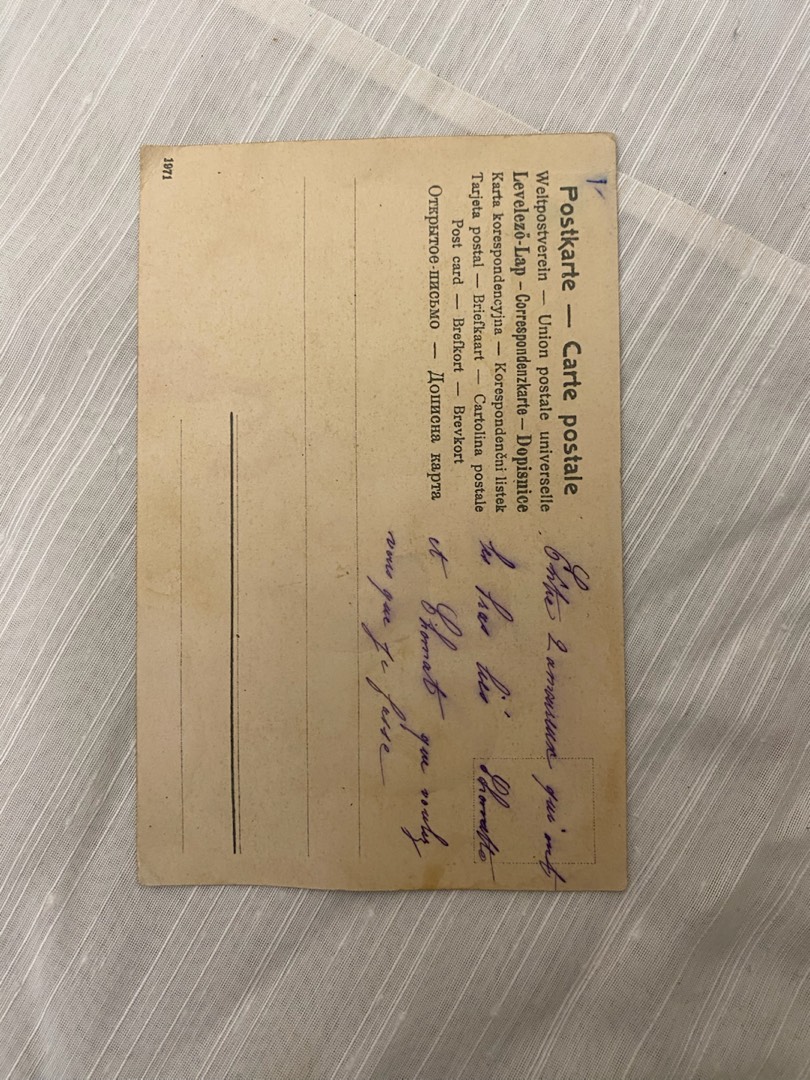 Postkarte — Carte postale
Weltpostverein — Union postale universelle
Levelező-Lap – Correspondenzkarte – Dopisnice
Karta korespondencyjna — Korespondenční listek
Tarjeta postal — Briefkaart — Cartolina postale
Post card — Brefkort — Brevkort
Открытое-письмо — Дописна карта
2 amoureux qui ont
les bras liés
et que voulez
vous que je fasse
1971